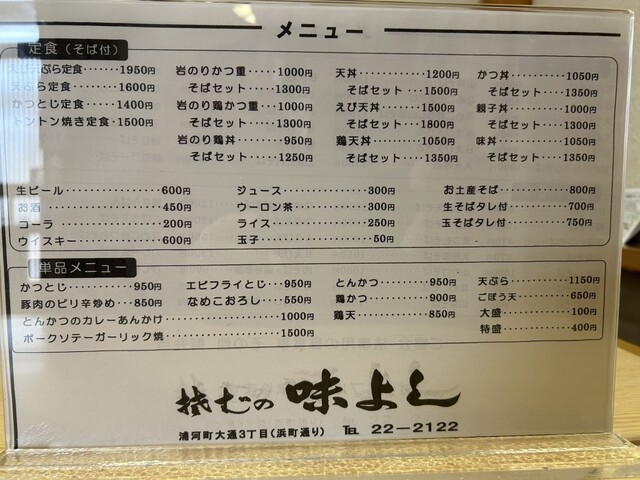 メニュー
定食（そば付）
ぷら定食‥‥‥1950円
天ぷら定食‥‥‥1600円
かつとじ定食‥‥1400円
トントン焼き定食‥1500円
岩のりかつ重‥‥‥1000円
そばセット‥‥1300円
岩のり鶏かつ重‥‥1000円
そばセット‥‥1300円
岩のり鶏丼‥‥‥950円
そばセット‥‥1250円
天丼‥‥‥‥‥1200円
そばセット‥‥1500円
えび天丼‥‥‥1500円
そばセット‥‥1800円
鶏天丼‥‥‥‥1050円
そばセット‥‥1350円
かつ丼‥‥‥‥1050円
そばセット‥‥1350円
親子丼‥‥‥‥1000円
そばセット‥‥1300円
味丼‥‥‥‥‥1050円
そばセット‥‥1350円
生ビール‥‥‥‥‥600円
お酒‥‥‥‥‥‥450円
コーラ‥‥‥‥‥200円
ウイスキー‥‥‥‥600円
ジュース‥‥‥‥‥300円
ウーロン茶‥‥‥‥300円
ライス‥‥‥‥‥250円
玉子‥‥‥‥‥‥50円
お土産そば‥‥‥‥800円
生そばタレ付‥‥‥700円
玉そばタレ付‥‥‥750円
単品メニュー
かつとじ‥‥‥‥950円
豚肉のピリ辛炒め‥‥850円
とんかつのカレーあんかけ‥‥‥‥1000円
ポークソテーガーリック焼‥‥‥‥1500円
エビフライとじ‥‥950円
なめこおろし‥‥‥550円
とんかつ‥‥‥‥950円
鶏かつ‥‥‥‥‥900円
鶏天‥‥‥‥‥‥850円
天ぷら‥‥‥‥1150円
ごぼう天‥‥‥‥650円
大盛‥‥‥‥‥‥100円
特盛‥‥‥‥‥‥400円
味よし
浦河町大通3丁目(浜町通り) TEL 22-2122